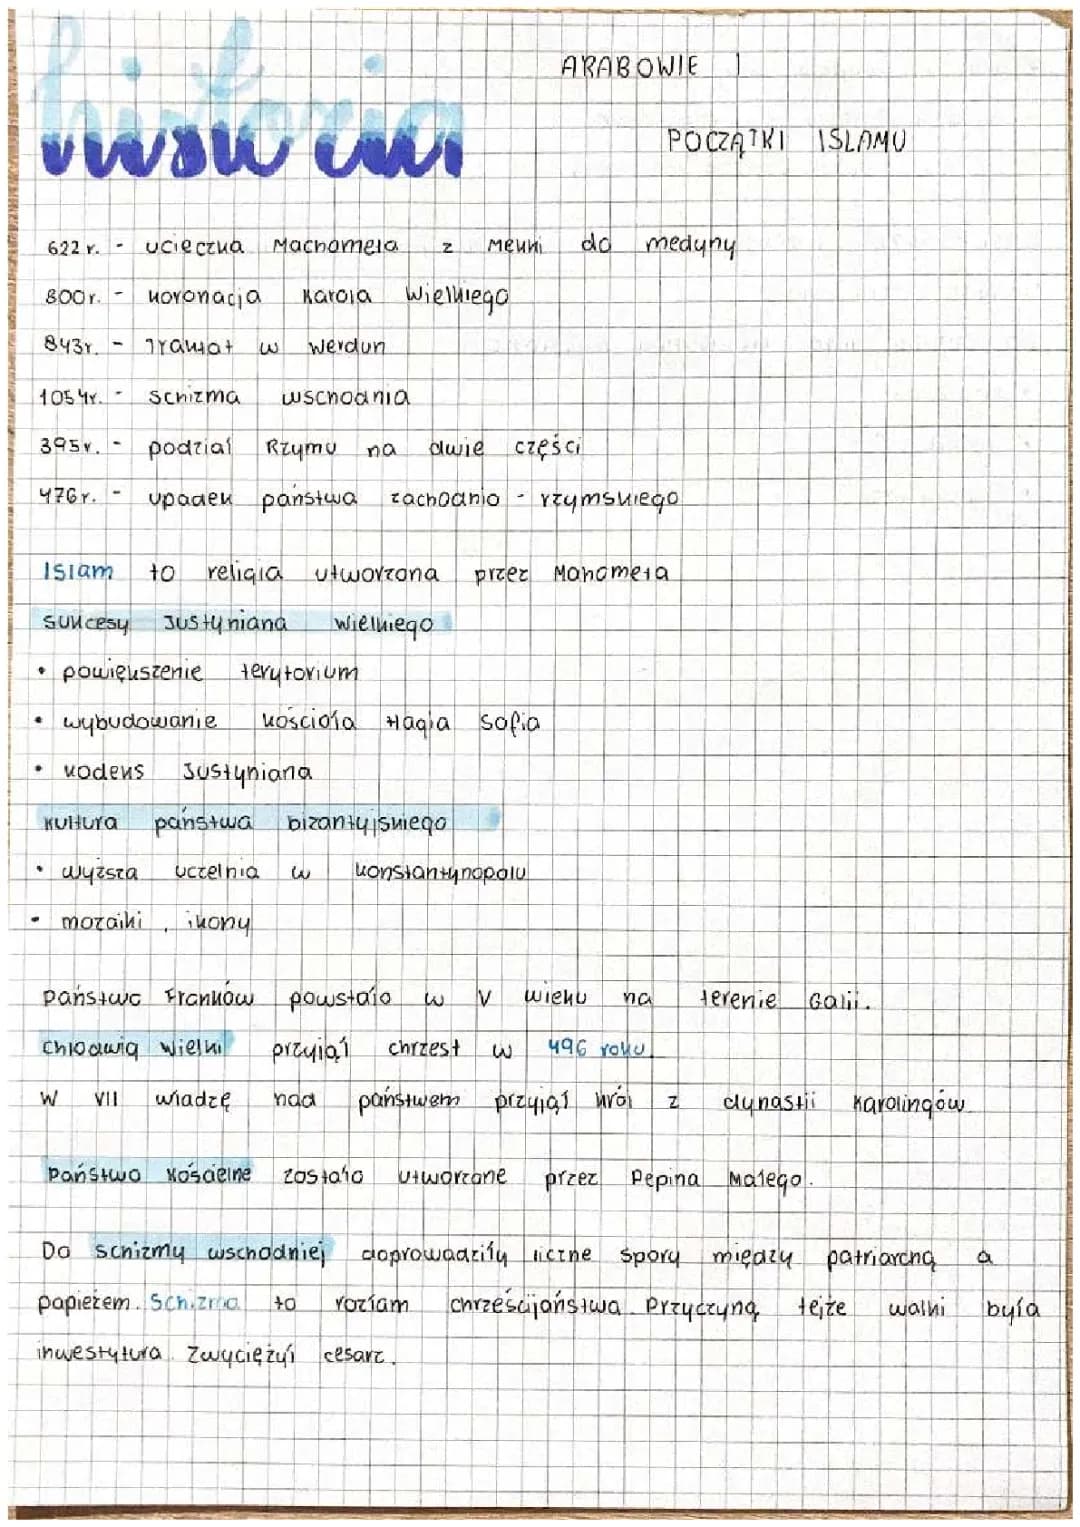 historia
ARABOWIE I
POCZĄTKI ISLAMU
622 r. - ucieczka Machometa z Mekki do medyny
800r. - koronacja Karola Wielkiego
843r. - Traktat w Werdun
1054r. - schizma wschodnia
395r. - podział Rzymu na dwie części
476r. - upadek państwa zachodnio - rzymskiego
Islam to religia utworzona przez Mahometa
sukcesy Justyniana Wielkiego
• powiększenie terytorium
• wybudowanie kościoła Hagia Sofia
• kodeks Justyniana
Kultura państwa bizantyjskiego
• wyższa uczelnia w Konstantynopolu
• mozaiki, ikony
Państwo Franków powstało w V wieku na terenie Galii.
Chlodwig Wielki przyjął chrzest w 496 roku.
W VII władzę nad państwem przyjął król z dynastii Karolingów
Państwo Kościelne zostało utworzone przez Pepina Małego.
Do schizmy wschodniej doprowadziły liczne spory między patriarchą a
papieżem. Schizma to rozłam chrześcijaństwa. Przyczyną tejże walki była
inwestytura. Zwyciężył cesarz.